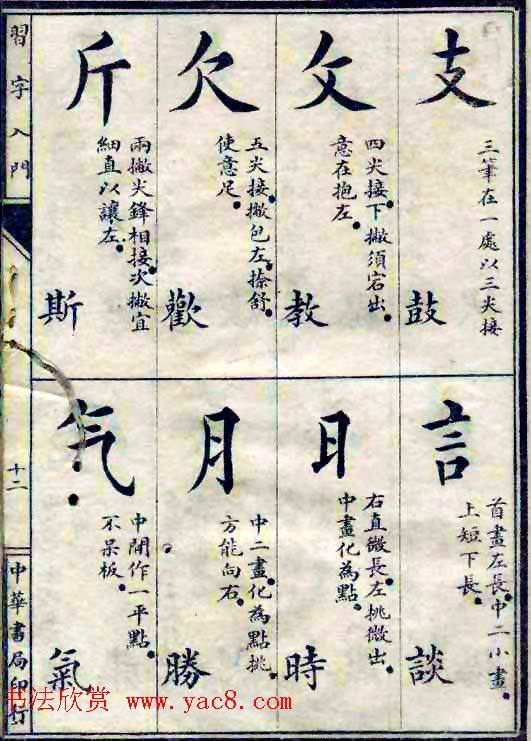 支
三筆在一處以三尖接
鼓
攵
四尖接下撇須宕出
意在抱左
教
欠
五尖接撇包左捺舒
使意足
歡
斤
兩撇尖鋒相接次撇宜
細直以讓左
斯
言
首畫左長中二小畫
上短下長
談
日
右直微長左挑微出
中畫化為點
時
月
中二畫化為點挑
方能向右
勝
气
中間作一平點
不呆板
氣
習字入門
十二
中華書局印行
书法欣赏 www.yac8.com